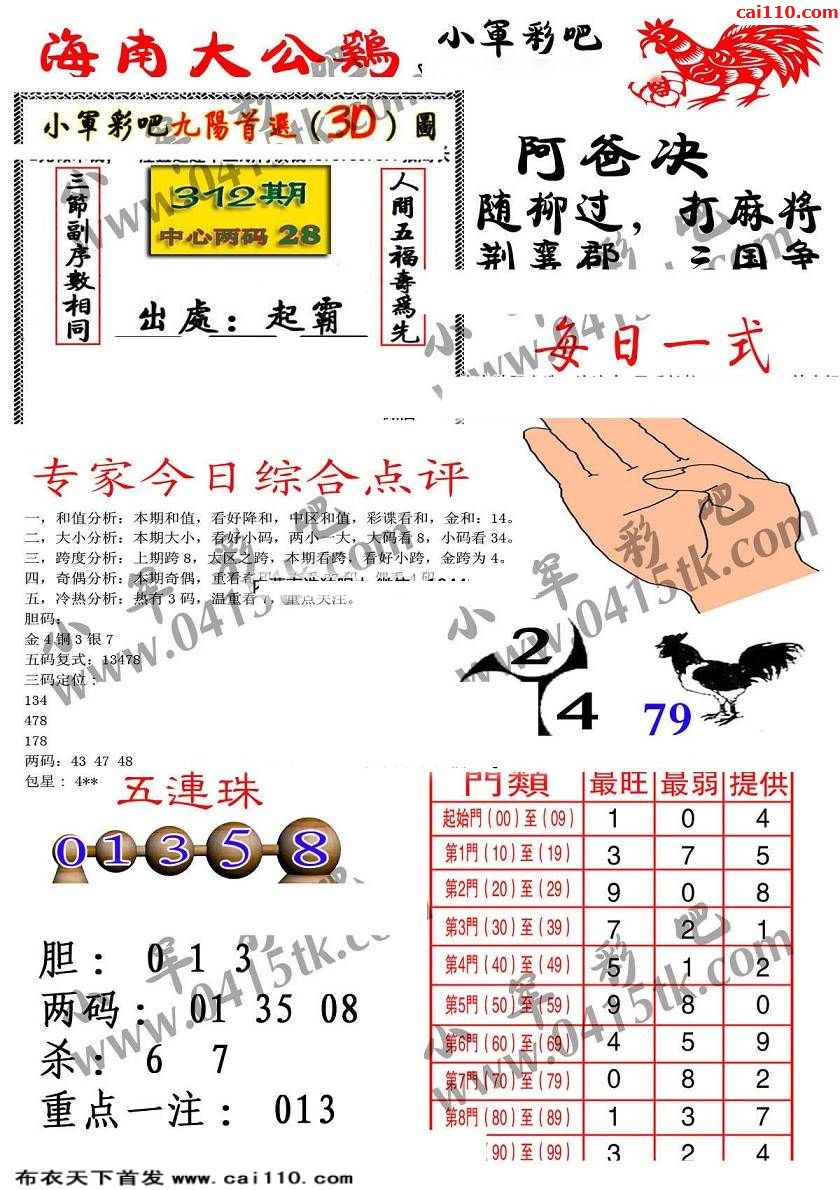 cai110.com
海南大公鷄
小軍彩吧
小軍彩吧九陽首選(3D)圖
三節副序數相同
312期
中心两码 28
人間五福壽爲先
出處：起霸
阿爸决
随柳过，打麻将
荆襄郡
每日一式
专家今日综合点评
一，和值分析：本期和值，看好降和，中区和值，彩谍看和，金和：14。
二，大小分析：本期大小，看好小码，两小一大，大码看8，小码看34。
三，跨度分析：上期跨8，大区之跨，本期看跨，看好小跨，金跨为4。
四，奇偶分析：本期奇偶，重看
五，冷热分析：热有3码，温重看7，重点关注。
胆码：
金4铜3银7
五码复式：13478
三码定位：
134
478
178
两码：43 47 48
包星：4**
2
4
79
五連珠
0 1 3 5 8
胆： 0 1 3
两码： 01 35 08
杀： 6 7
重点一注： 013
門類 最旺 最弱 提供
起始門（00）至（09） 1 0 4
第1門（10）至（19） 3 7 5
第2門（20）至（29） 9 0 8
第3門（30）至（39） 7 2 1
第4門（40）至（49） 5 1 2
第5門（50）至（59） 9 8 0
第6門（60）至（69） 4 5 9
第7門（70）至（79） 0 8 2
第8門（80）至（89） 1 3 7
（90）至（99） 3 2 4
小军彩吧
www.0415tk.com
小军彩吧
www.0415tk.com
小军彩吧
www.0415tk.com
小军彩吧
www.0415tk.com
小军彩吧
www.0415tk.com
小军彩吧
www.0415tk.com
布衣天下首发 www.cai110.com